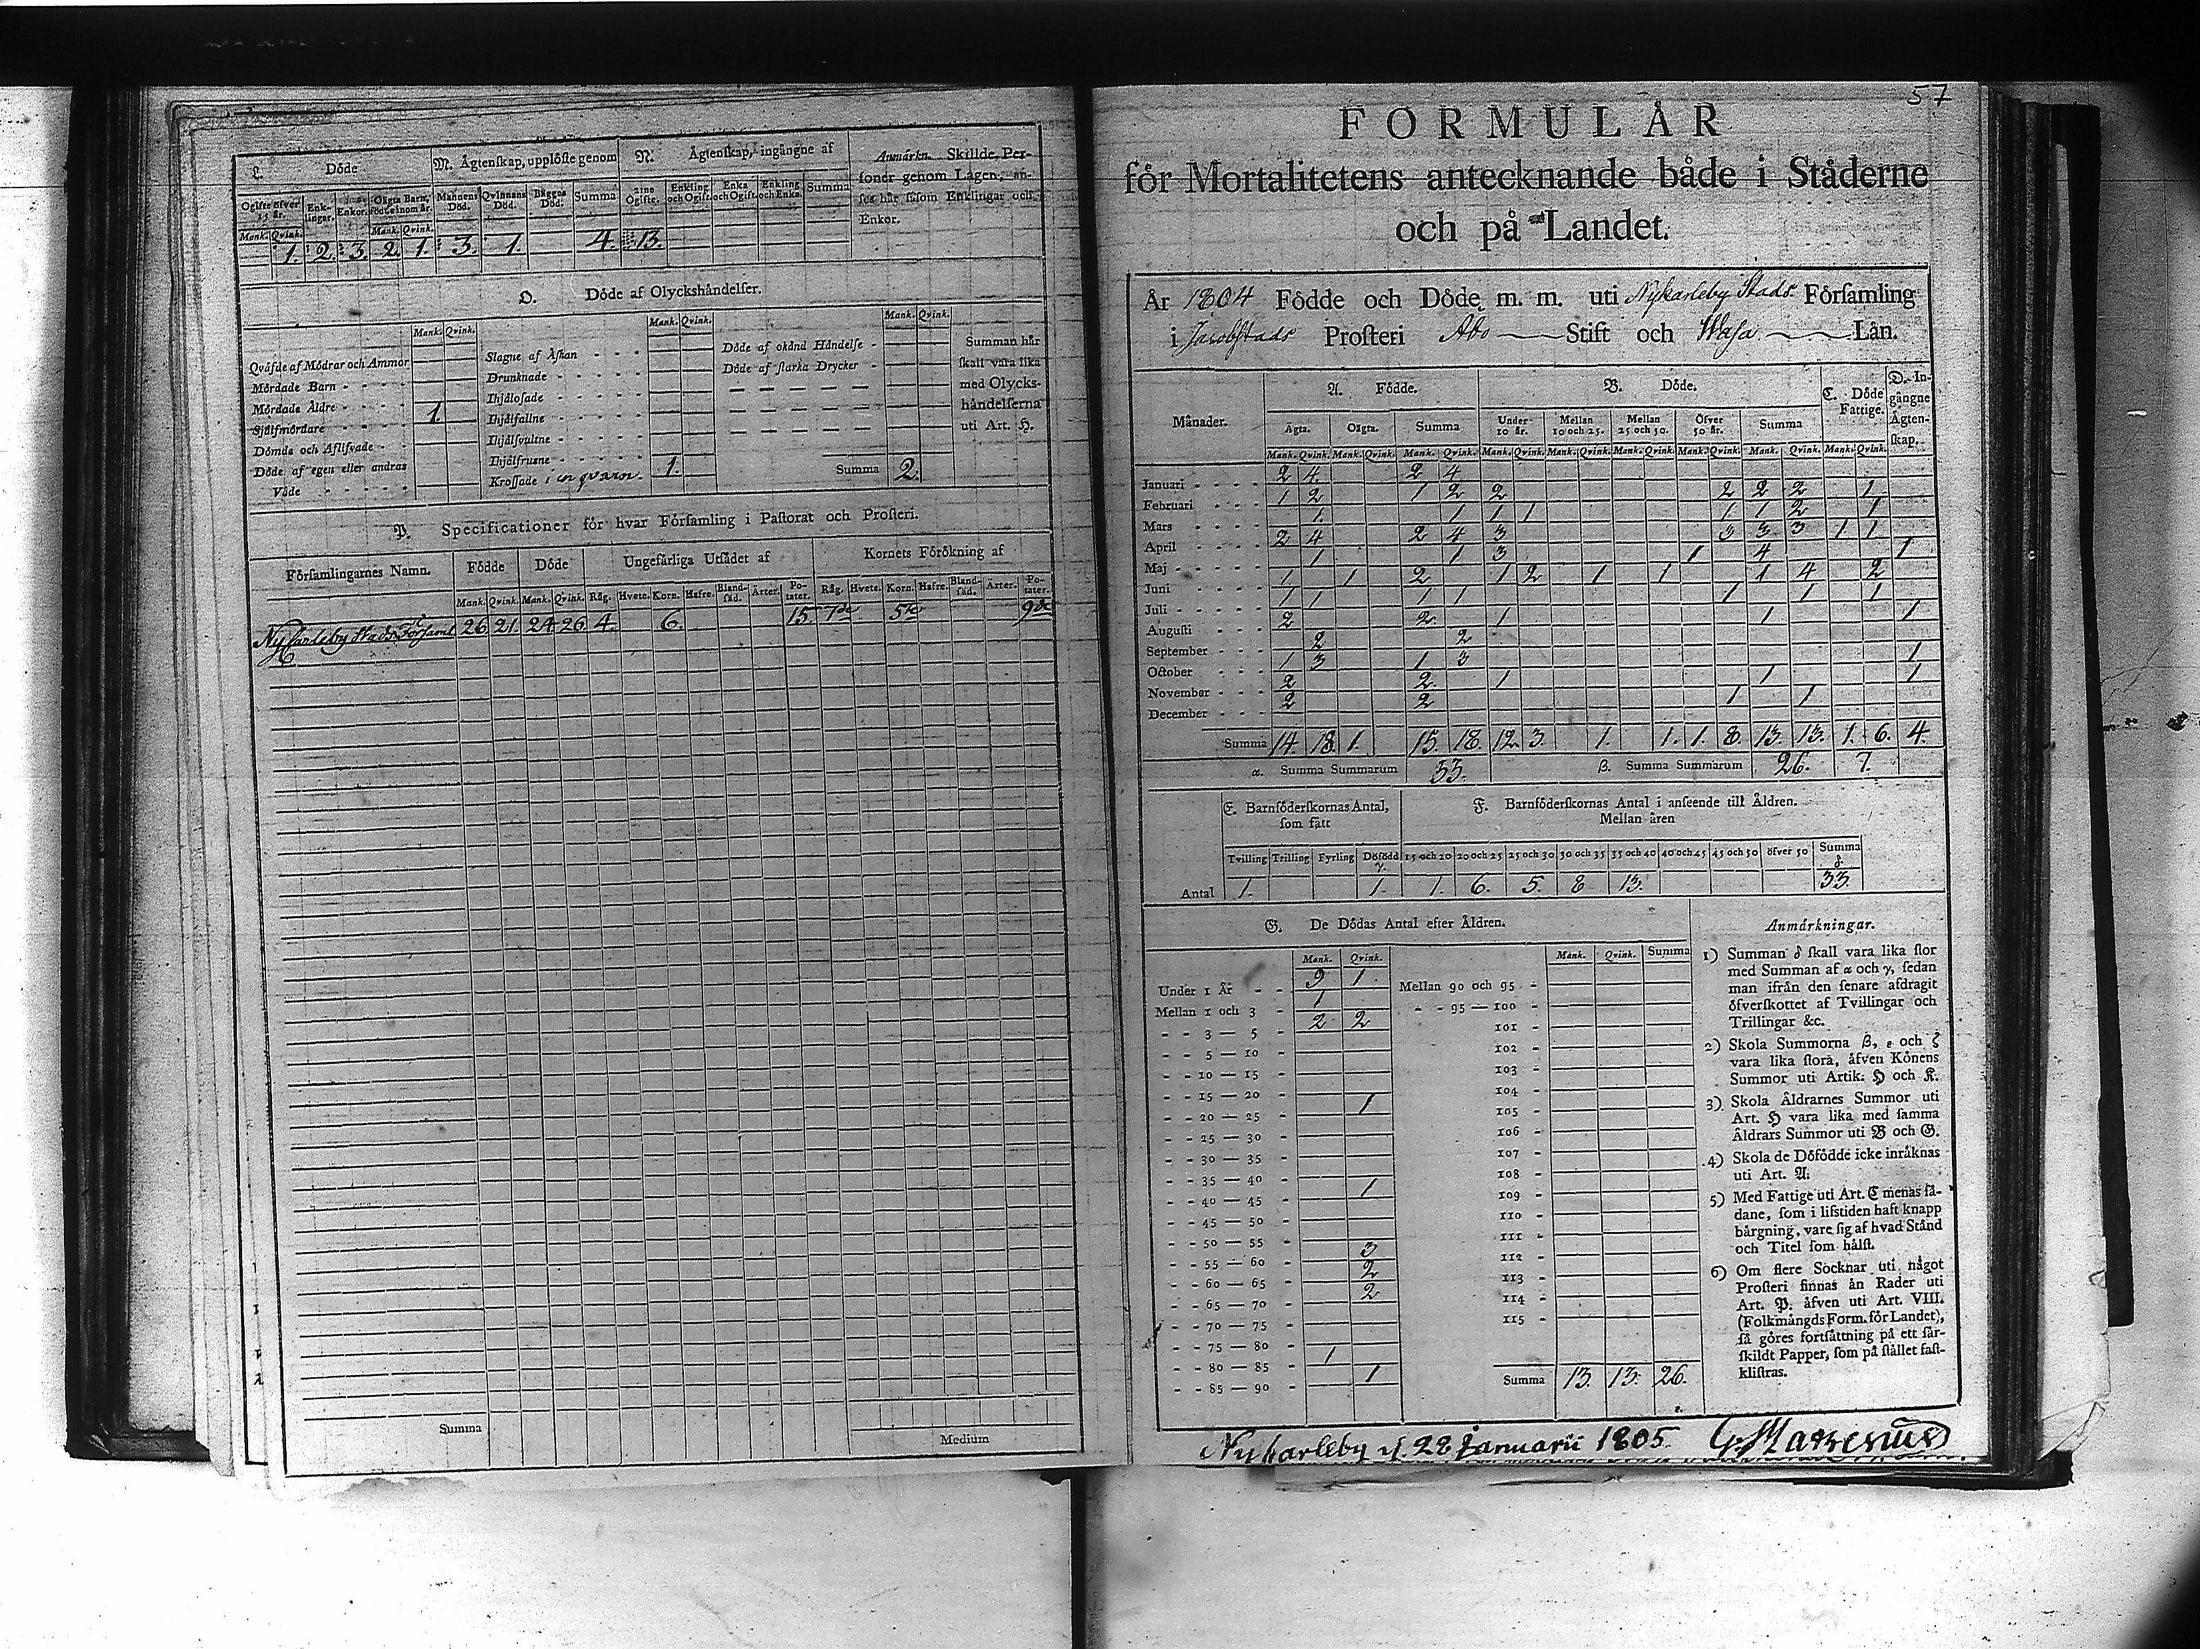 L. Döde
M. Ägtenskap, upplöste genom
N. Ägtenskap, ingångne af
Anmärkn. Skillde Personer genom Lagen, anses här såsom Enklingar och Enkor.
Ogifte öfver 15 år. Enklingar. Enkor. Oägta Barn, födde inom år. Mannens Död. Qvinnans Död. Bägges Död. Summa 2:ne Ogifte. Enkling och Ogift. Enka och Ogift. Enkling och Enka Summa
Mank. Qvink. Mank. Qvink.
1. 2. 3. 2. 1. 3. 1. 4. 13.
O. Döde af Olyckshändelser.
Mank. Qvink. Mank. Qvink. Mank. Qvink.
Qväfde af Mödrar och Ammor
Mördade Barn
Mördade Äldre
Sjelfmördare 1.
Dömde och Aflifvade
Döde af egen eller andras Våde
Slagne af Åskan
Drunknade
Ihjälosade
Ihjälfallne
Ihjälsvultne
Ihjälfrusne
Krossade i en qvarn 1.
Döde af okänd Händelse
Döde af starka Drycker
Summa 2.
Summan här skall vara lika med Olyckshändelserna uti Art. H.
P. Specificationer för hvar Församling i Pastorat och Prosteri.
Församlingarnes Namn. Födde Döde Ungefärliga Utsädet af Kornets Förökning af
Mank. Qvink. Mank. Qvink. Råg. Hvete. Korn. Hafre. Blandsäd. Ärter. Potater. Råg. Hvete. Korn. Hafre. Blandsäd. Ärter. Potater.
Ny Carleby Stads Församl 26 21. 24 26 4. 6. 15. 7de 5te 9de
Summa
Medium
57
FORMULÄR
för Mortalitetens antecknande både i Städerne
och på Landet.
År 1804 Födde och Döde m. m. uti Nykarleby Stads Församling
i Jacobstads Prosteri Åbo Stift och Wasa Län.
Månader. A. Födde. B. Döde. C. Döde Fattige. D. Ingångne Ägtenskap.
Ägta. Oägta. Summa Under 10 år. Mellan 10 och 25. Mellan 25 och 50. Öfver 50 år. Summa
Mank. Qvink. Mank. Qvink. Mank. Qvink. Mank. Qvink. Mank. Qvink. Mank. Qvink. Mank. Qvink. Mank. Qvink. Mank. Qvink.
Januari 2 4. 2 4
Februari 1 2 1 2 2 2 2 2 1
Mars 1. 1 1 1 1 1 2 1
April 2 4 2 4 3 3 3 3 1 1
Maj 1 1 3 1 4 1
Juni 1 1 2 1 2 1 1 1 4 2
Juli 1 1 1 1 1 1 1
Augusti 2 2. 1 1 1
September 2 2
October 1 3 1 3 1
November 2 2 1 1 1
December 2 2 1 1
Summa 14. 18. 1. 15. 18. 12. 3. 1. 1. 1. 8. 13. 13. 1. 6. 4.
α. Summa Summarum 33. β. Summa Summarum 26. 7.
E. Barnföderskornas Antal, som fått
F. Barnföderskornas Antal i anseende till Åldren.
Mellan åren
Tvilling Trilling Fyrling Döfödd γ. 15 och 20 20 och 25 25 och 30 30 och 35 35 och 40 40 och 45 45 och 50 öfver 50 Summa δ.
Antal 1. 1. 1. 6. 5. 8 13. 33.
G. De Dödas Antal efter Åldren.
Mank. Qvink. Mank. Qvink. Summa
Under 1 År 9 1.
Mellan 1 och 3 1
3 — 5 2 2
5 — 10
10 — 15
15 — 20
20 — 25 1
25 — 30
30 — 35
35 — 40
40 — 45 1
45 — 50
50 — 55
55 — 60 3
60 — 65 2
65 — 70 2
70 — 75
75 — 80
80 — 85 1
85 — 90 1
Mellan 90 och 95
95 — 100
101
102
103
104
105
106
107
108
109
110
111
112
113
114
115
Summa 13. 13. 26.
Anmärkningar.
1) Summan δ skall vara lika stor
med Summan af α och γ, sedan
man ifrån den senare afdragit
öfverskottet af Tvillingar och
Trillingar &c.
2) Skola Summorna β, ε och ζ
vara lika stora, äfven Könens
Summor uti Artik. H och K.
3) Skola Äldrarnes Summor uti
Art. H vara lika med samma
Äldrars Summor uti B och G.
4) Skola de Döfödde icke inräknas
uti Art. A.
5) Med Fattige uti Art. C menas så-
dane, som i lifstiden haft knapp
bärgning, vare sig af hvad Stånd
och Titel som hälst.
6) Om flere Socknar uti något
Prosteri finnas än Rader uti
Art. P. äfven uti Art. VIII.
(Folkmängds Form. för Landet),
så göres fortsättning på ett sär-
skildt Papper, som på stället fast-
klistras.
Nykarleby d. 28 Januarii 1805.